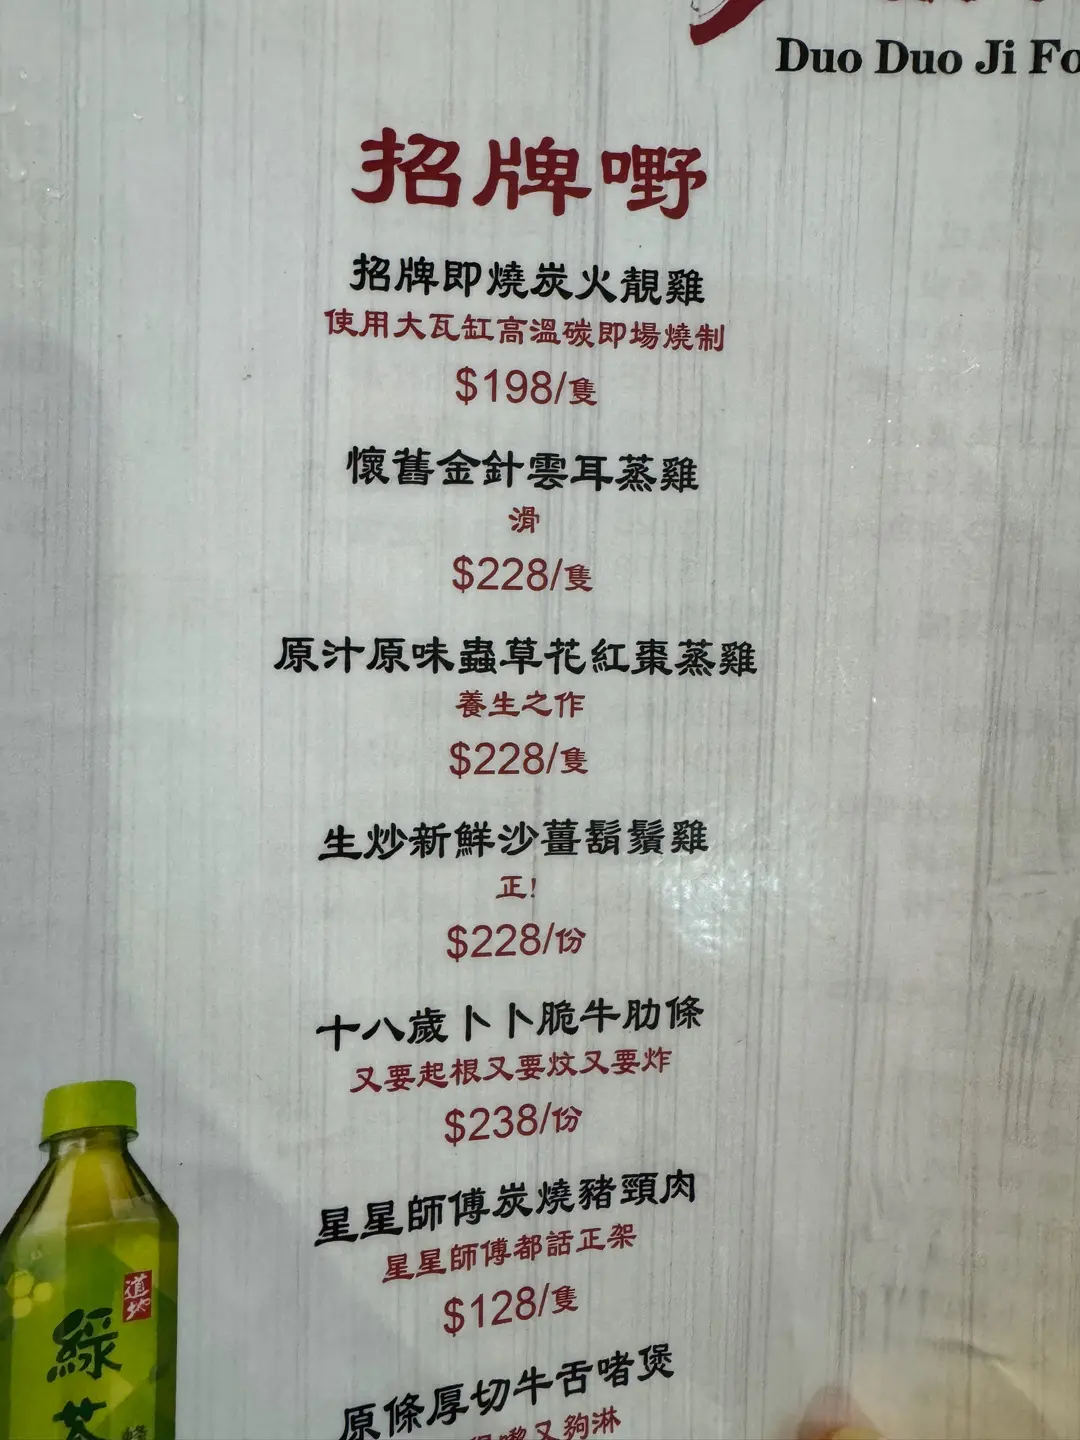 Duo Duo Ji
招牌嘢
招牌即燒炭火靚雞
使用大瓦缸高溫碳即場燒制
$198/隻
懷舊金針雲耳蒸雞
滑
$228/隻
原汁原味蟲草花紅棗蒸雞
養生之作
$228/隻
生炒新鮮沙薑鬍鬚雞
正!
$228/份
十八歲卜卜脆牛肋條
又要起根又要炆又要炸
$238/份
星星師傅炭燒豬頸肉
星星師傅都話正架
$128/隻
原條厚切牛舌啫煲
又夠淋
道地
綠
茶